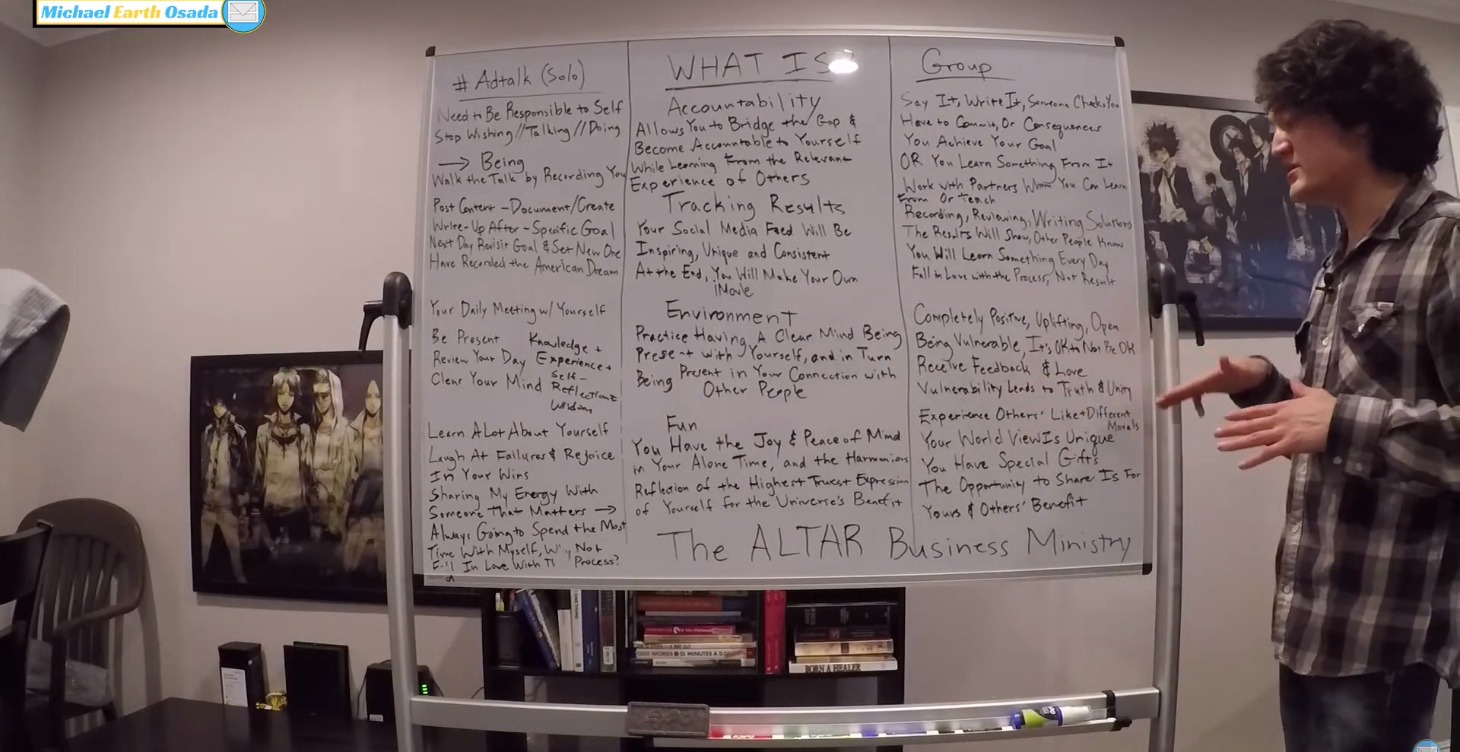 Michael Earth Osada
# Adtalk (Solo)
Need to Be Responsible to Self
Stop Wishing//Talking//Doing
→ Being
Walk the Talk by Recording You
Post Content - Document/Create
Write-Up After - Specific Goal
Next Day Revisit Goal & Set New One
Have Recorded the American Dream
Your Daily Meeting w/ Yourself
Be Present
Review Your Day
Clear Your Mind
Knowledge +
Experience +
Self-
Reflection =
Wisdom
Learn A Lot About Yourself
Laugh At Failures & Rejoice
In Your Wins
Sharing My Energy With
Someone That Matters →
Always Going to Spend the Most
Time With Myself, Why Not
Fall In Love With Process?
WHAT IS
Accountability
Allows You to Bridge the Gap &
Become Accountable to Yourself
While Learning From the Relevant
Experience of Others
Tracking Results
Your Social Media Feed Will Be
Inspiring, Unique and Consistent
At the End, You Will Make Your Own
iMovie
Environment
Practice Having A Clear Mind Being
Present with Yourself, and in Turn
Being Present in Your Connection with
Other People
Fun
You Have the Joy & Peace of Mind
in Your Alone Time, and the Harmonious
Reflection of the Highest Truest Expression
of Yourself for the Universe's Benefit
The ALTAR Business Ministry
Group
Say It, Write It, Someone Checks You
Have to Commit, Or Consequences
You Achieve Your Goal
OR You Learn Something From It
Work with Partners Whom You Can Learn
From Or Teach
Recording, Reviewing, Writing Solutions
The Results Will Show, Other People Know
You Will Learn Something Every Day
Fall in Love with the Process, Not Result
Completely Positive, Uplifting, Open
Being Vulnerable, It's OK to Not Be OK
Receive Feedback & Love
Vulnerability Leads to Truth & Unity
Experience Others' Like + Different
Morals
Your World View Is Unique
You Have Special Gifts
The Opportunity to Share Is For
Yours & Others' Benefit
BORN A HEALER